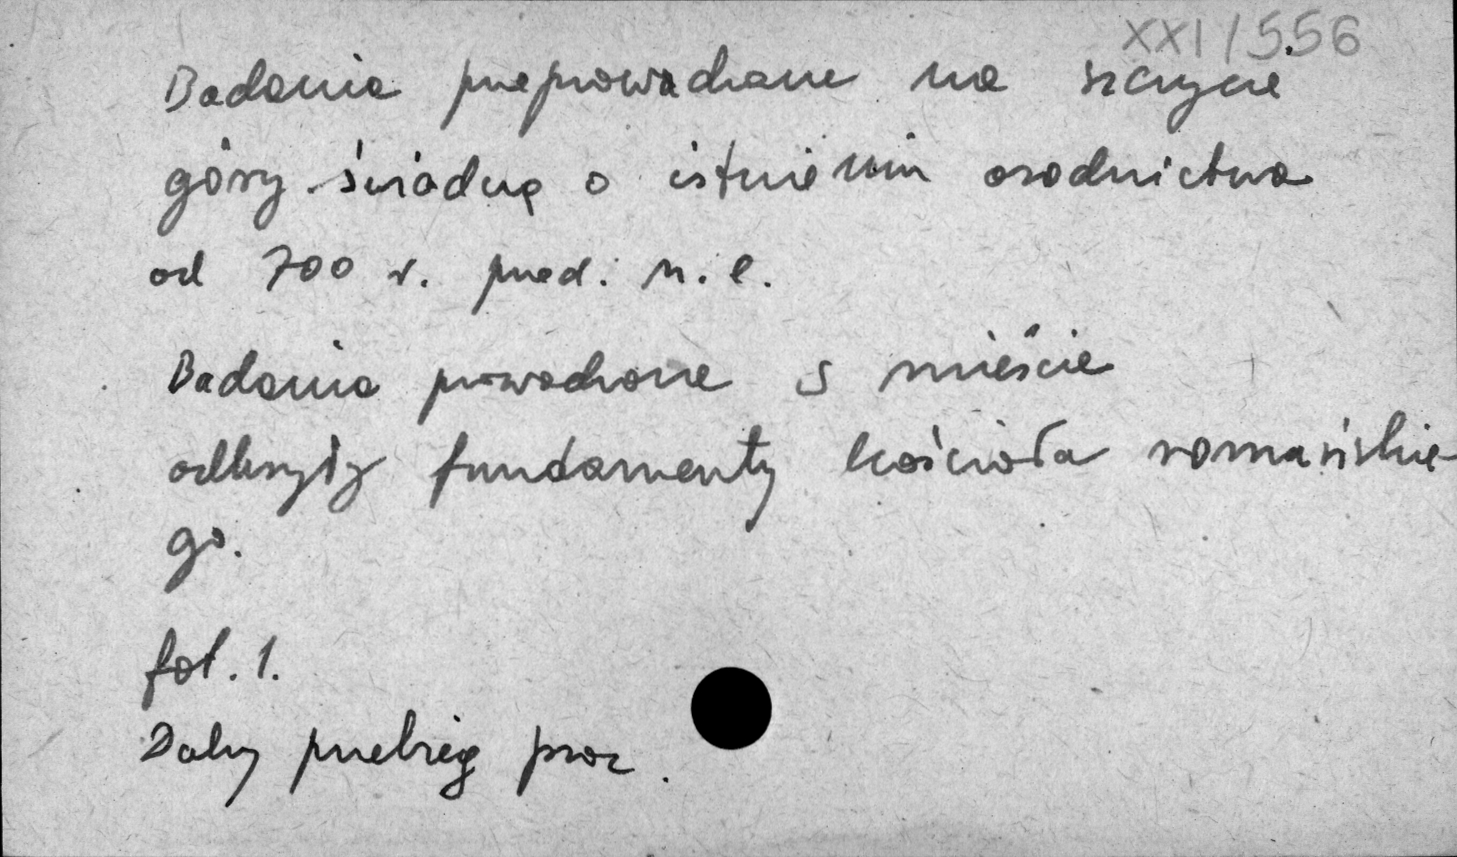 XXI/556
Badania przeprowadzane na szczycie
góry świadczą o istnieniu osadnictwa
od 700 r. przed. n.e.
Badania prowadzone w mieście
odkryły fundamenty kościoła romańskie
go.
fot. 1.
Dalszy przebieg prac.